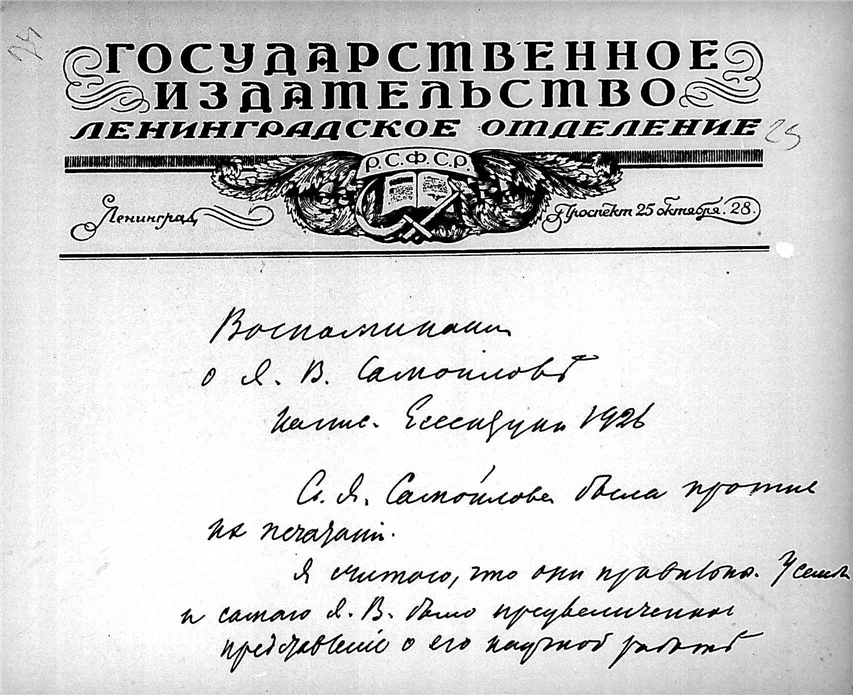 24
ГОСУДАРСТВЕННОЕ
ИЗДАТЕЛЬСТВО
ЛЕНИНГРАДСКОЕ ОТДЕЛЕНИЕ
25
Р.С.Ф.С.Р.
Ленинград
Проспект 25 октября. 28.
Воспоминания
о Я. В. Самойловѣ
Ессентуки 1926
Я. Самойлова была против
их печатания.
Я считаю, что они правильны. У семьи
и самого Я. В. было преувеличенное
представленiе о его научной работѣ